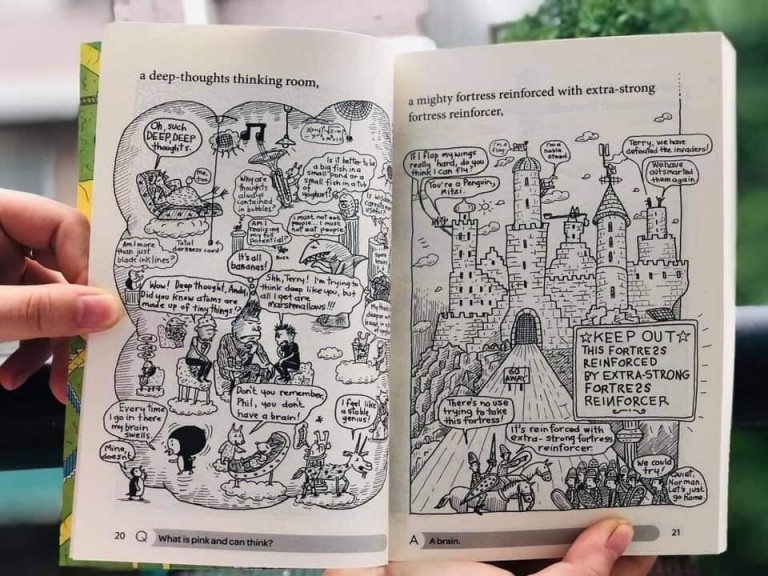 a deep-thoughts thinking room,
Oh, such
DEEP, DEEP
thoughts.
Me,
too.
Why are
thoughts
always
contained
in bubbles?
Is it better to be
a big fish in a
small pond or a
small fish in a tub
of yoghurt?
Am I
realising
my full
potential?
I must not eat
people... I must
not eat people.
Am I more
than just
black ink lines?
Total
darkness cord
It's all
bananas!
Wow! Deep thought, Andy.
Did you know atoms are
made up of tiny things!?
Shh, Terry! I'm trying to
think deep like you, but
all I get are
marshmallows!!!
Every time
I go in there
my brain
swells.
Mine
doesn't
Don't you remember,
Phil, you don't
have a brain!
I feel like
a stable
genius!
20 Q What is pink and can think?
a mighty fortress reinforced with extra-strong
fortress reinforcer,
If I flap my wings
really hard, do you
think I can fly?
You're a Penguin,
Mitzi.
I'm a
flag.
I'm a
noble
steed.
Terry, we have
defeated the invaders!
We have
outsmarted
them again.
KEEP OUT
THIS FORTRESS
REINFORCED
BY EXTRA-STRONG
FORTRESS
REINFORCER
GO
AWAY
There's no use
trying to take
this fortress!
It's reinforced with
extra-strong fortress
reinforcer.
We could
try!
Quiet,
Norman.
Let's just
go home.
A A brain. 21